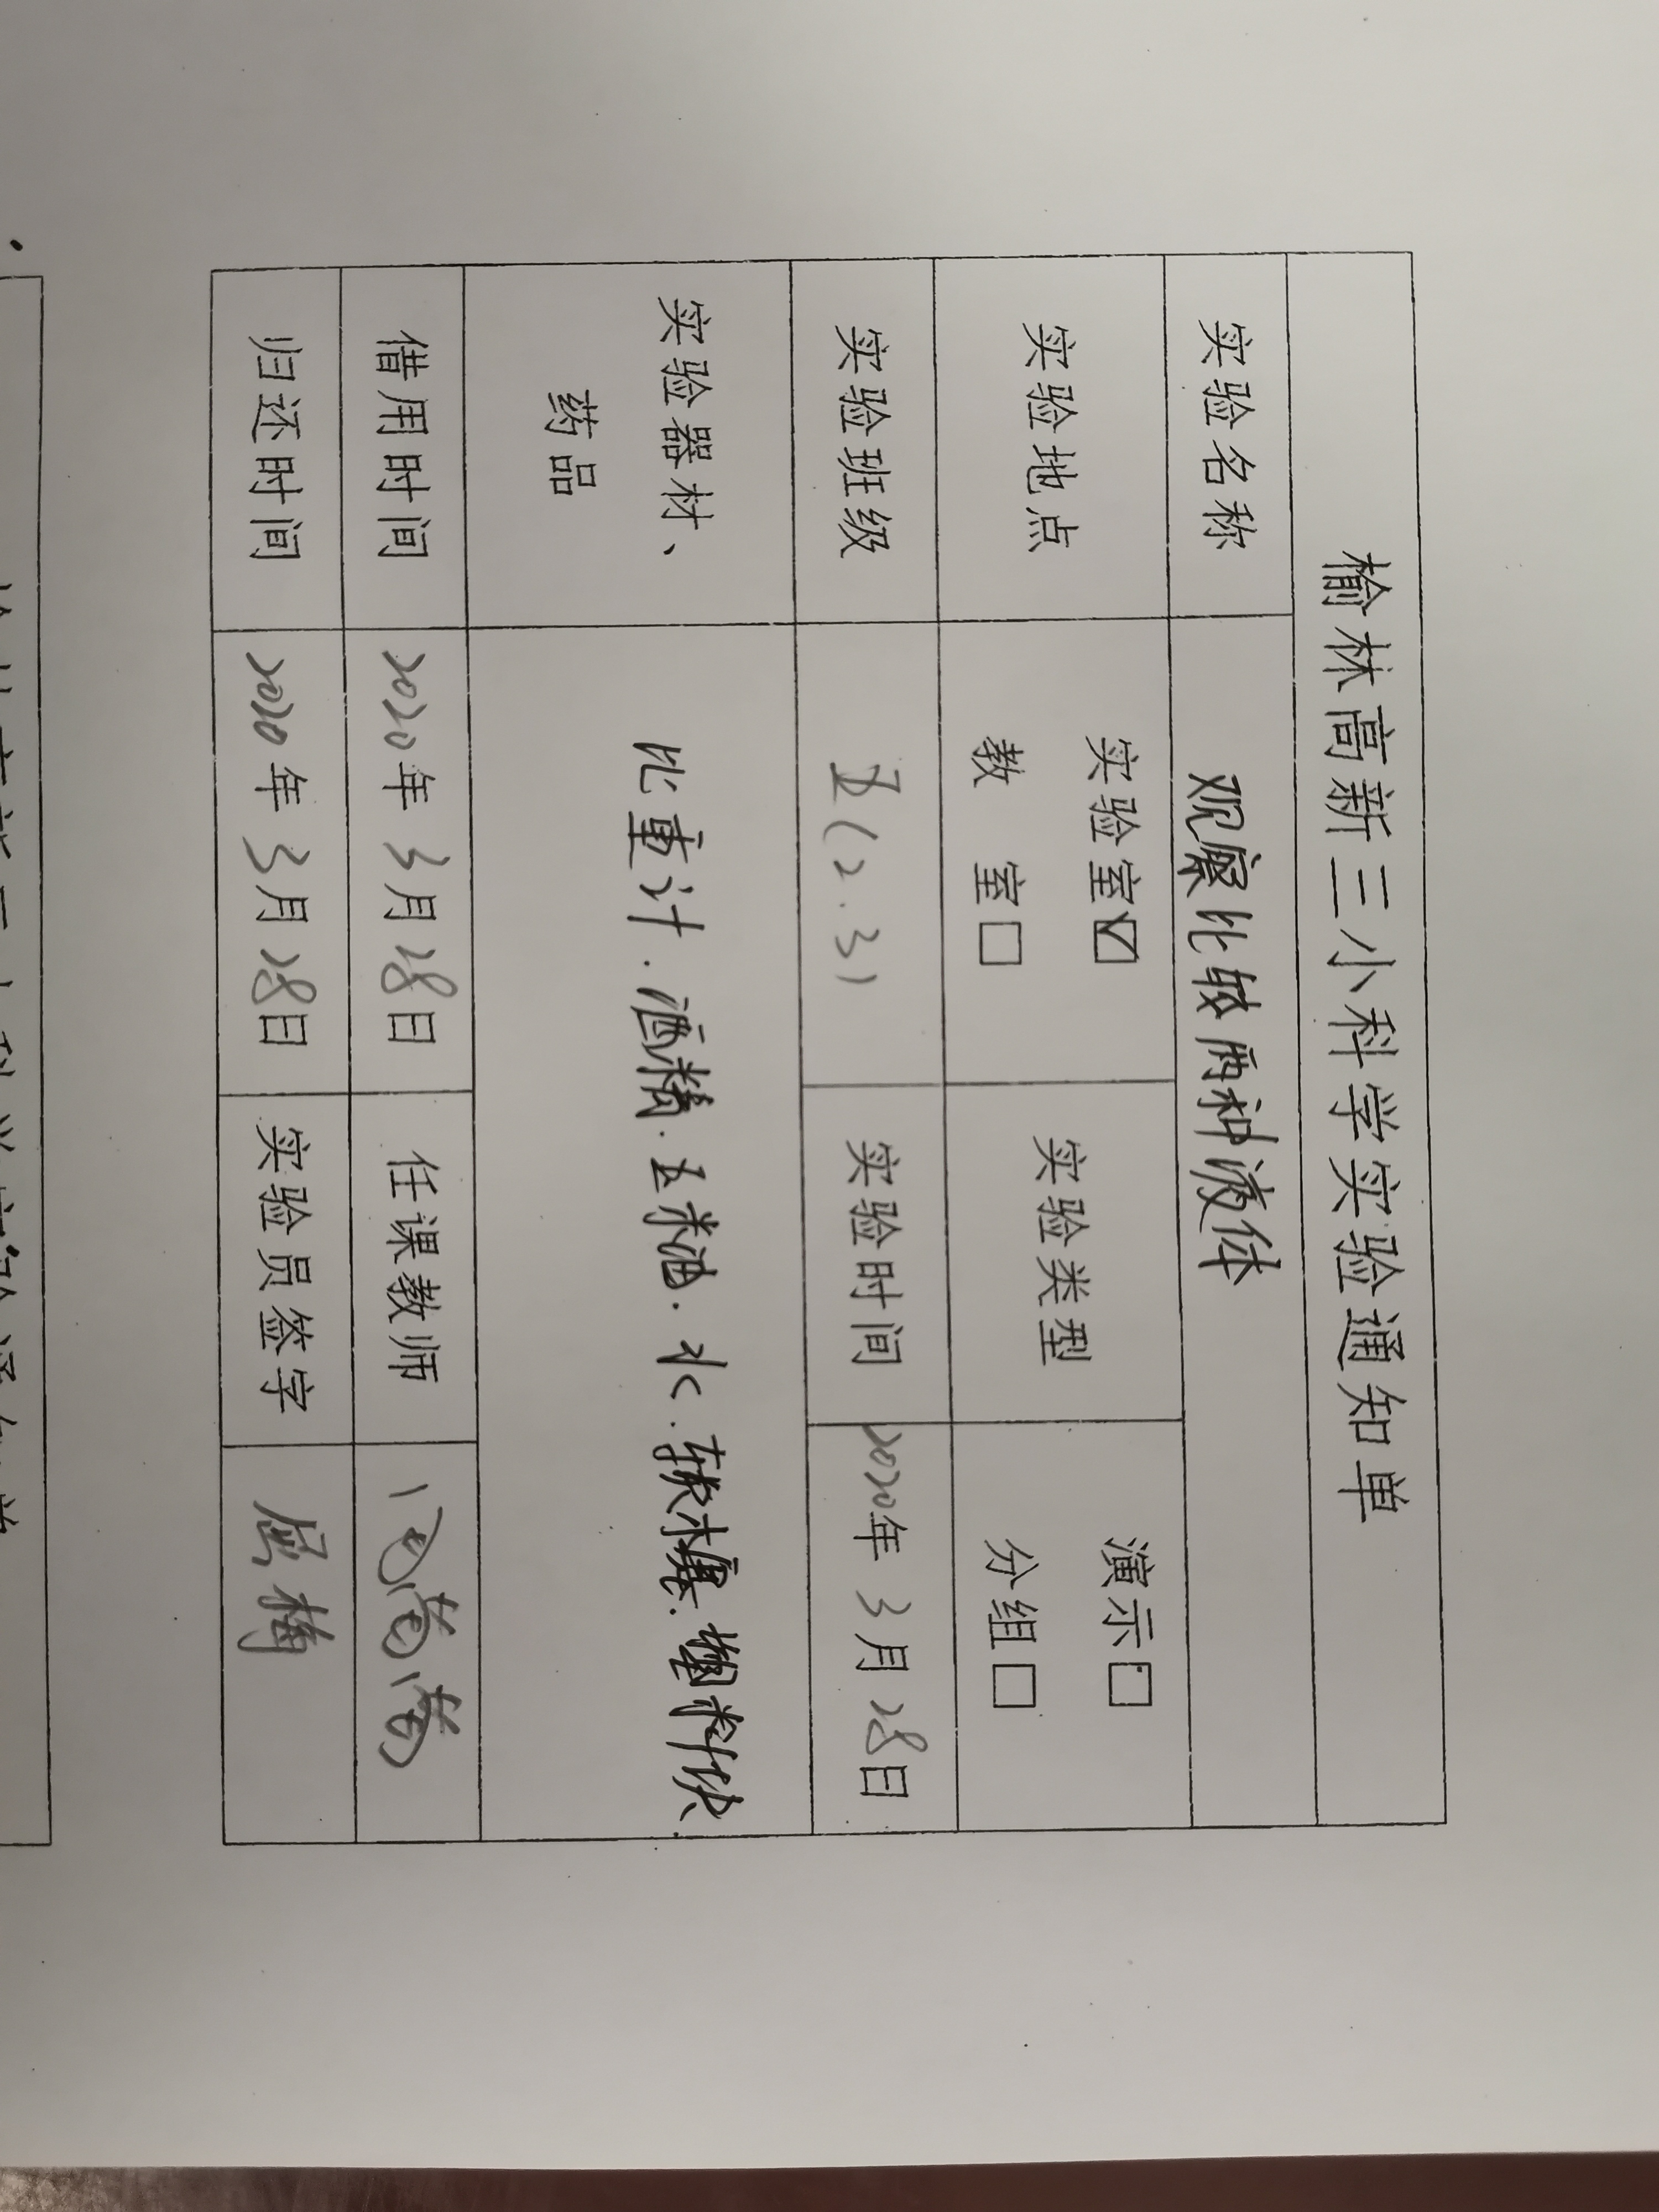 榆林高新三小科学实验通知单
实验名称 观察比较两种液体
实验地点 实验室☑ 教 室□ 实验类型 演示□ 分组□
实验班级 五(2.3) 实验时间 2020年3月28日
实验器材、药品 比重计.酒精.玉米油.水.软木塞.塑料块
借用时间 2020年3月28日 任课教师
归还时间 2020年3月28日 实验员签字 屈梅